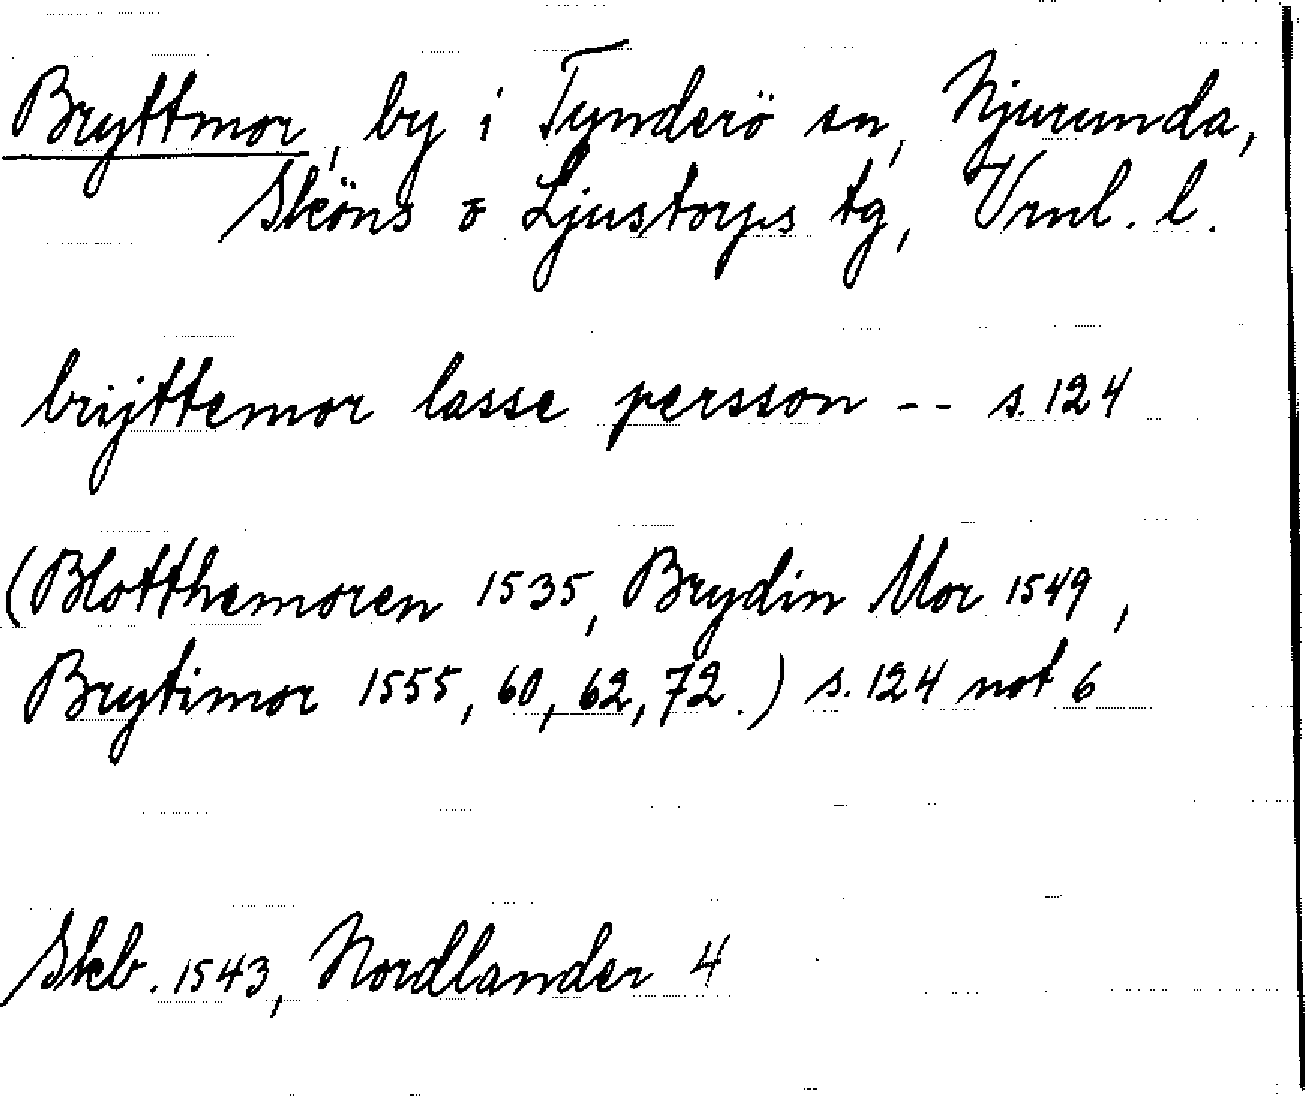 Bryttmor, by i Tynderö sn, Njurunda,
Sköns o Ljustorps tg, Vrnl. l.
brijttemor lasse persson -- s. 124
(Blotthemoren 1535, Brydin Mor 1549,
Brytimor 1555, 60, 62, 72.) s. 124 not 6
Skb. 1543, Nordlander 4